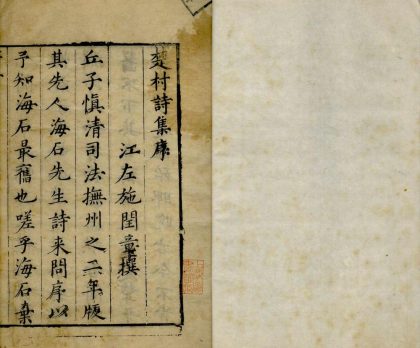 楚村詩集序
江左施閏章撰
丘子慎清司法撫州之二年版
其先人海石先生詩来問序以
予知海石最舊也嗟乎海石棄